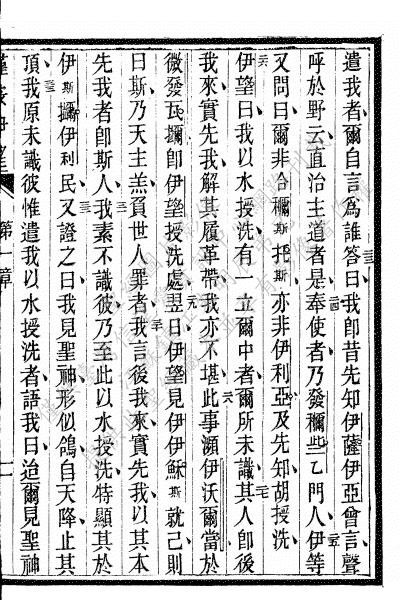 遣我者爾自言爲誰答曰我卽昔先知伊薩伊亞曾言聲
呼於野云直治主道者是奉使者乃發穪些乙門人伊等
又問曰爾非合穪斯托斯亦非伊利亞及先知胡授洗
伊望曰我以水授洗有一立爾中者爾所未識其人卽後
我來實先我解其履革帶我亦不堪此事瀕伊沃爾當於
微發瓦攡卽伊望授洗處翌日伊望見伊伊穌斯就己則
曰斯乃天主羔負世人罪者我言後我來實先我以其本
先我者卽斯人我素不識彼乃至此以水授洗特顯其於
伊斯攡伊利民又證之曰我見聖神形似鴿自天降止其
頂我原未識彼惟遣我以水授洗者語我曰迨爾見聖神
第一章